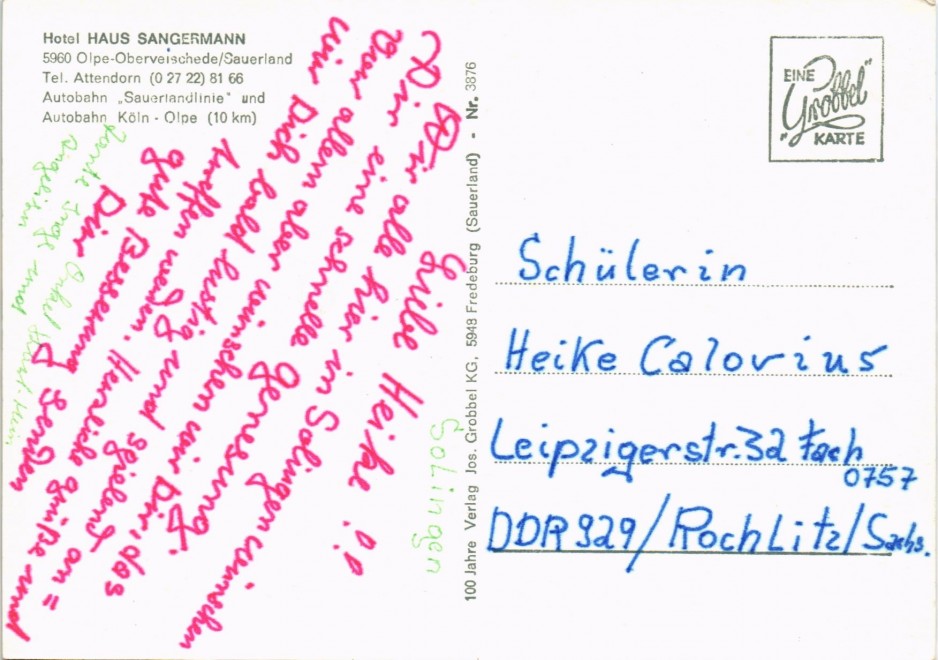 Hotel HAUS SANGERMANN
5960 Olpe-Oberveischede/Sauerland
Tel. Attendorn (0 27 22) 81 66
Autobahn „Sauerlandlinie" und
Autobahn Köln - Olpe (10 km)
Solingen
Liebe Heike !!
Wir alle hier in Solingen wünschen
Dir eine schnelle Genesung.
Vor allem aber wünschen wir Dir, das
wir Dich bald lustig und spielend an=
treffen werden. Herzliche Grüße und
gute Besserung senden
Dir
Tante Inge und Onkel
und
100 Jahre Verlag Jos. Grobbel KG, 5948 Fredeburg (Sauerland) - Nr. 3876
EINE
"Grobbel"
KARTE
Schülerin
Heike Calovius
Leipzigerstr. 32 Fach
0757
DDR 929/Rochlitz/Sachs.